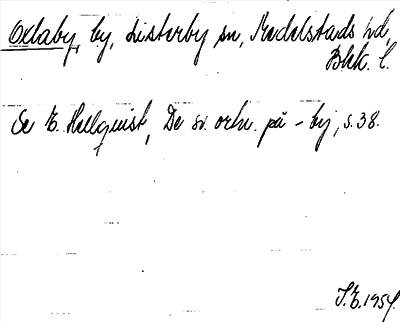 Oxlaby, by, Listerby sn, Medelstads hd,
Blek. l.
Se E. Hellquist, De sv. ortn. på -by, s. 38.
J.E. 1954.